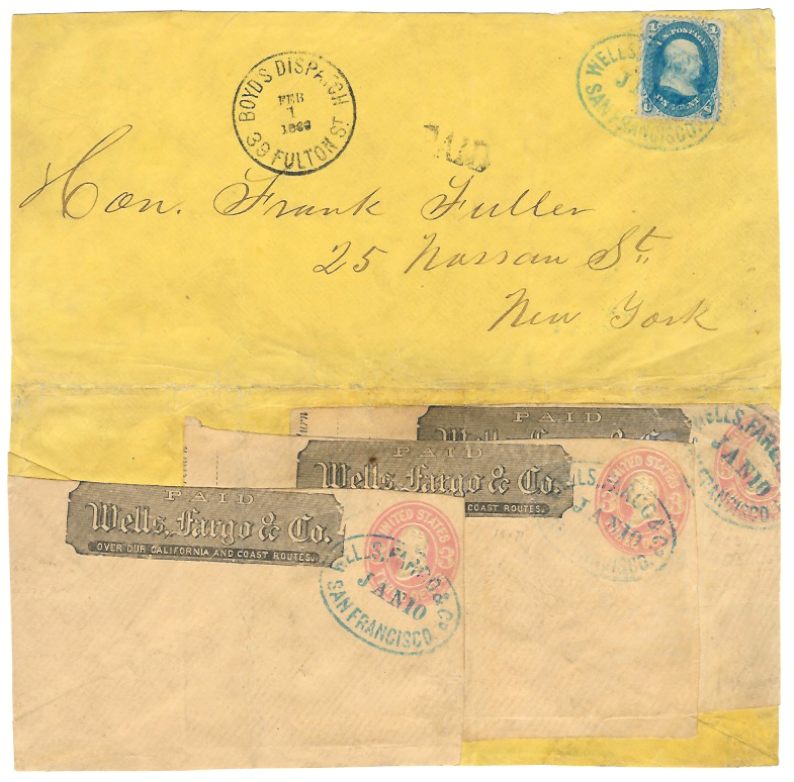 WELLS,
JA
SAN FRANCISCO.
U.S. POSTAGE
BOYD'S DISPATCH
FEB
1
39 FULTON ST
PAID
Hon. Frank Fuller
25 Nassau St.
New York
PAID
Wells, Fargo & Co.
WELLS, FARGO
JAN 10
PAID
Wells, Fargo & Co.
COAST ROUTES.
UNITED STATES
FARGO & Co
JAN 10
PAID
Wells, Fargo & Co.
OVER OUR CALIFORNIA AND COAST ROUTES.
UNITED STATES
WELLS, FARGO & Co
JAN 10
SAN FRANCISCO.